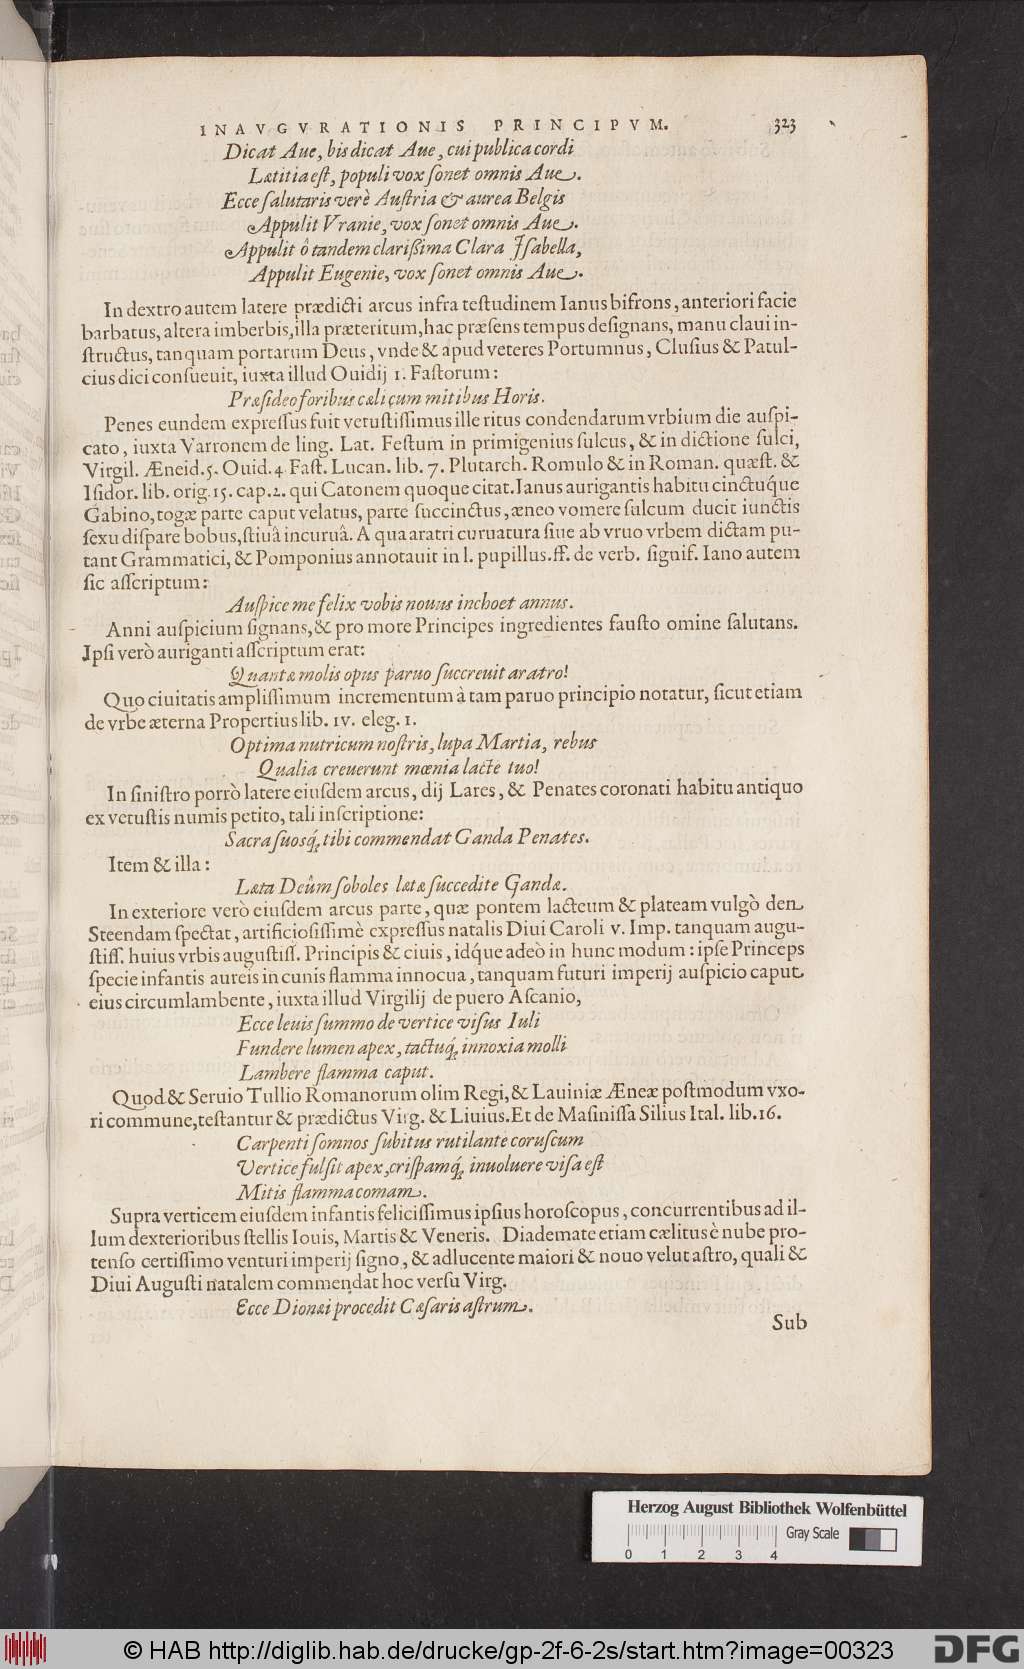 INAVGVRATIONIS PRINCIPVM. 323
Dicat Aue, bis dicat Aue, cui publica cordi
Lætitia eſt, populi vox ſonet omnis Aue.
Ecce ſalutaris verè Auſtria & aurea Belgis
Appulit Vranie, vox ſonet omnis Aue.
Appulit ô tandem clarißima Clara Iſabella,
Appulit Eugenie, vox ſonet omnis Aue.
In dextro autem latere prædicti arcus infra teſtudinem Ianus bifrons, anteriori facie
barbatus, altera imberbis, illa præteritum, hac præſens tempus deſignans, manu claui in-
ſtructus, tanquam portarum Deus, vnde & apud veteres Portumnus, Cluſius & Patul-
cius dici conſueuit, iuxta illud Ouidij 1. Faſtorum:
Præſideo foribus cæli cum mitibus Horis.
Penes eundem expreſſus fuit vetuſtiſſimus ille ritus condendarum vrbium die auſpi-
cato, iuxta Varronem de ling. Lat. Feſtum in primigenius ſulcus, & in dictione ſulci,
Virgil. Æneid. 5. Ouid. 4 Faſt. Lucan. lib. 7. Plutarch. Romulo & in Roman. quæſt. &
Iſidor. lib. orig. 15. cap. 2. qui Catonem quoque citat. Ianus aurigantis habitu cinctuq́ue
Gabino, togæ parte caput velatus, parte ſuccinctus, æneo vomere ſulcum ducit iunctis
ſexu diſpare bobus, ſtiuâ incuruâ. A qua aratri curuatura ſiue ab vruo vrbem dictam pu-
tant Grammatici, & Pomponius annotauit in l. pupillus. ff. de verb. ſignif. Iano autem
ſic aſſcriptum:
Auſpice me felix vobis nouus inchoet annus.
Anni auſpicium ſignans, & pro more Principes ingredientes fauſto omine ſalutans.
Ipſi verò auriganti aſſcriptum erat:
Quantæ molis opus paruo ſuccreuit aratro!
Quo ciuitatis ampliſſimum incrementum à tam paruo principio notatur, ſicut etiam
de vrbe æterna Propertius lib. IV. eleg. 1.
Optima nutricum noſtris, lupa Martia, rebus
Qualia creuerunt mœnia lacte tuo!
In ſiniſtro porrò latere eiuſdem arcus, dij Lares, & Penates coronati habitu antiquo
ex vetuſtis numis petito, tali inſcriptione:
Sacra ſuosq́; tibi commendat Ganda Penates.
Item & illa:
Læta Deûm ſoboles lætæ ſuccedite Gandæ.
In exteriore verò eiuſdem arcus parte, quæ pontem lacteum & plateam vulgò den
Steendam ſpectat, artificioſiſſimè expreſſus natalis Diui Caroli v. Imp. tanquam augu-
ſtiſſ. huius vrbis auguſtiſſ. Principis & ciuis, idq́ue adeò in hunc modum: ipſe Princeps
ſpecie infantis aureis in cunis flamma innocua, tanquam futuri imperij auſpicio caput
eius circumlambente, iuxta illud Virgilij de puero Aſcanio,
Ecce leuis ſummo de vertice viſus Iuli
Fundere lumen apex, tactuq́; innoxia molli
Lambere flamma caput.
Quod & Seruio Tullio Romanorum olim Regi, & Lauiniæ Æneæ poſtmodum vxo-
ri commune, teſtantur & prædictus Virg. & Liuius. Et de Maſiniſſa Silius Ital. lib. 16.
Carpenti ſomnos ſubitus rutilante coruſcum
Vertice fulſit apex, criſpamq́; inuoluere viſa eſt
Mitis flamma comam.
Supra verticem eiuſdem infantis feliciſſimus ipſius horoſcopus, concurrentibus ad il-
lum dexterioribus ſtellis Iouis, Martis & Veneris. Diademate etiam cælitus è nube pro-
tenſo certiſſimo venturi imperij ſigno, & adlucente maiori & nouo velut aſtro, quali &
Diui Auguſti natalem commendat hoc verſu Virg.
Ecce Dionæi procedit Cæſaris aſtrum.
Sub
Herzog August Bibliothek Wolfenbüttel
0 1 2 3 4
Gray Scale
© HAB http://diglib.hab.de/drucke/gp-2f-6-2s/start.htm?image=00323
DFG